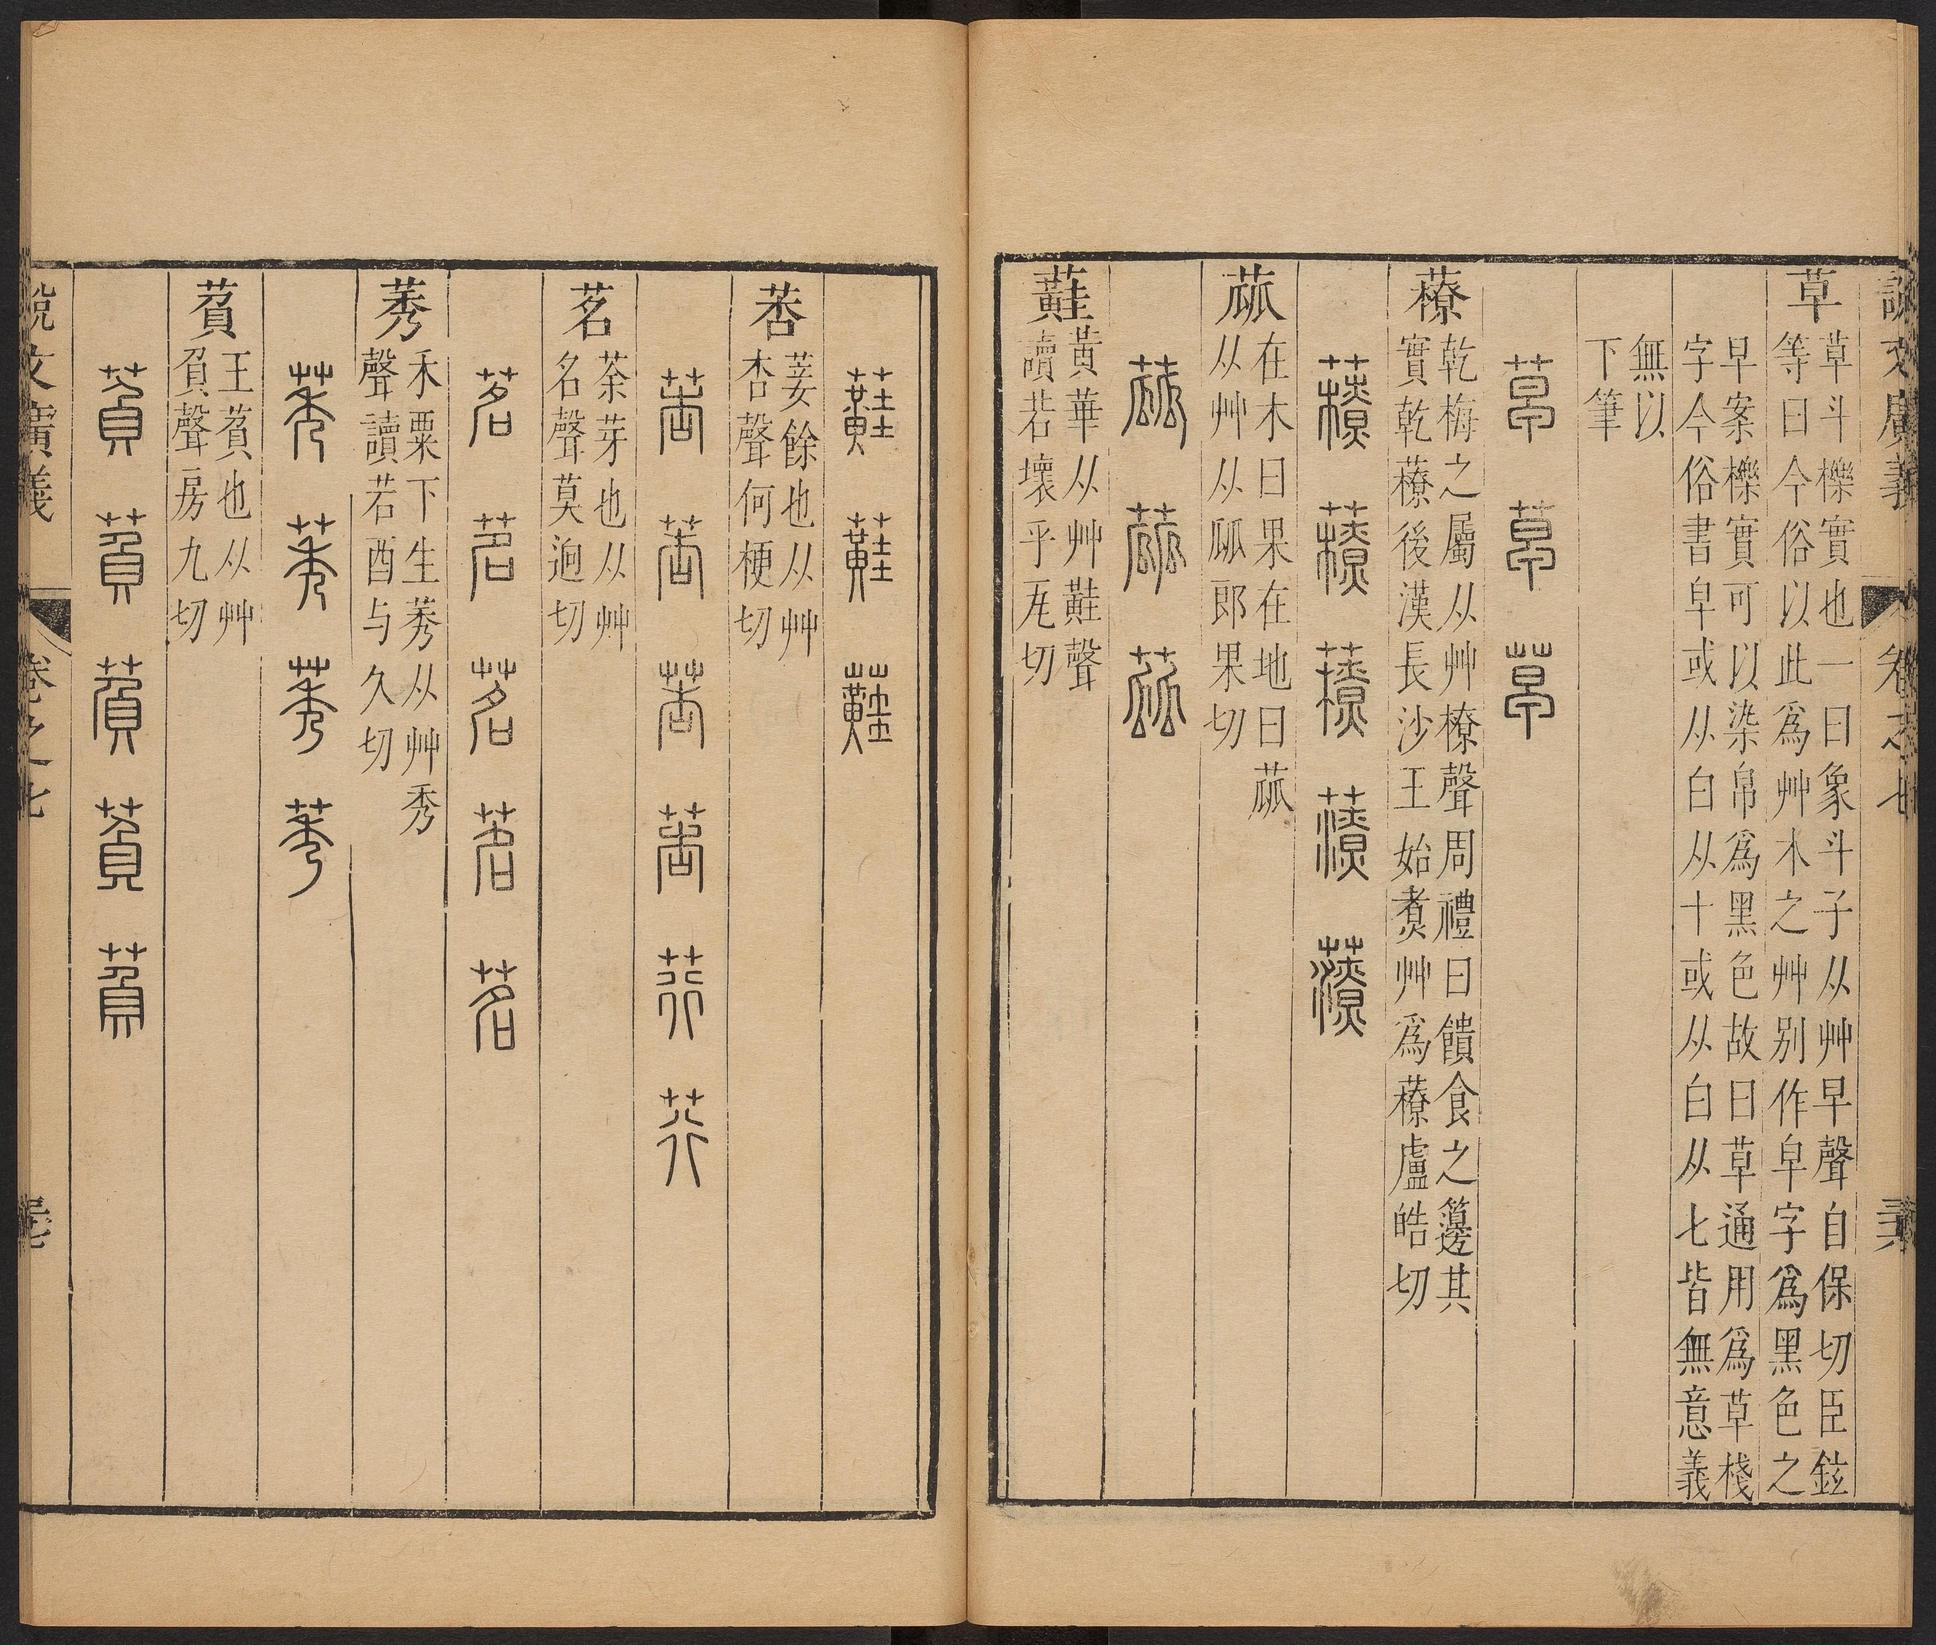 說文廣義 卷之七 三六
草
草斗櫟實也一曰象斗子从艸早聲自保切臣鉉
等曰今俗以此爲艸木之艸別作皁字爲黑色之
早案櫟實可以染帛爲黑色故曰草通用爲草棧
字今俗書皁或从白从十或从白从七皆無意義
無以
下筆
草 草 草
䕩
乾梅之屬从艸橑聲周禮曰饋食之籩其
實乾䕩後漢長沙王始煑艸爲䕩盧皓切
䕩 䕩 䕩 䕩 䕩
蓏
在木曰果在地曰蓏
从艸从㼌郎果切
蓏 蓏 蓏
蘳
黃華从艸黊聲
讀若壞乎瓦切
蘳 蘳 蘳
莕
菨餘也从艸
杏聲何梗切
莕 莕 莕 莕 荇 荇
茗
荼芽也从艸
名聲莫迥切
茗 茗 茗 茗 茗
莠
禾粟下生莠从艸秀
聲讀若酉与久切
莠 莠 莠 莠
萯
王萯也从艸
負聲房九切
萯 萯 萯 萯 萯
說文廣義 卷之七 三七